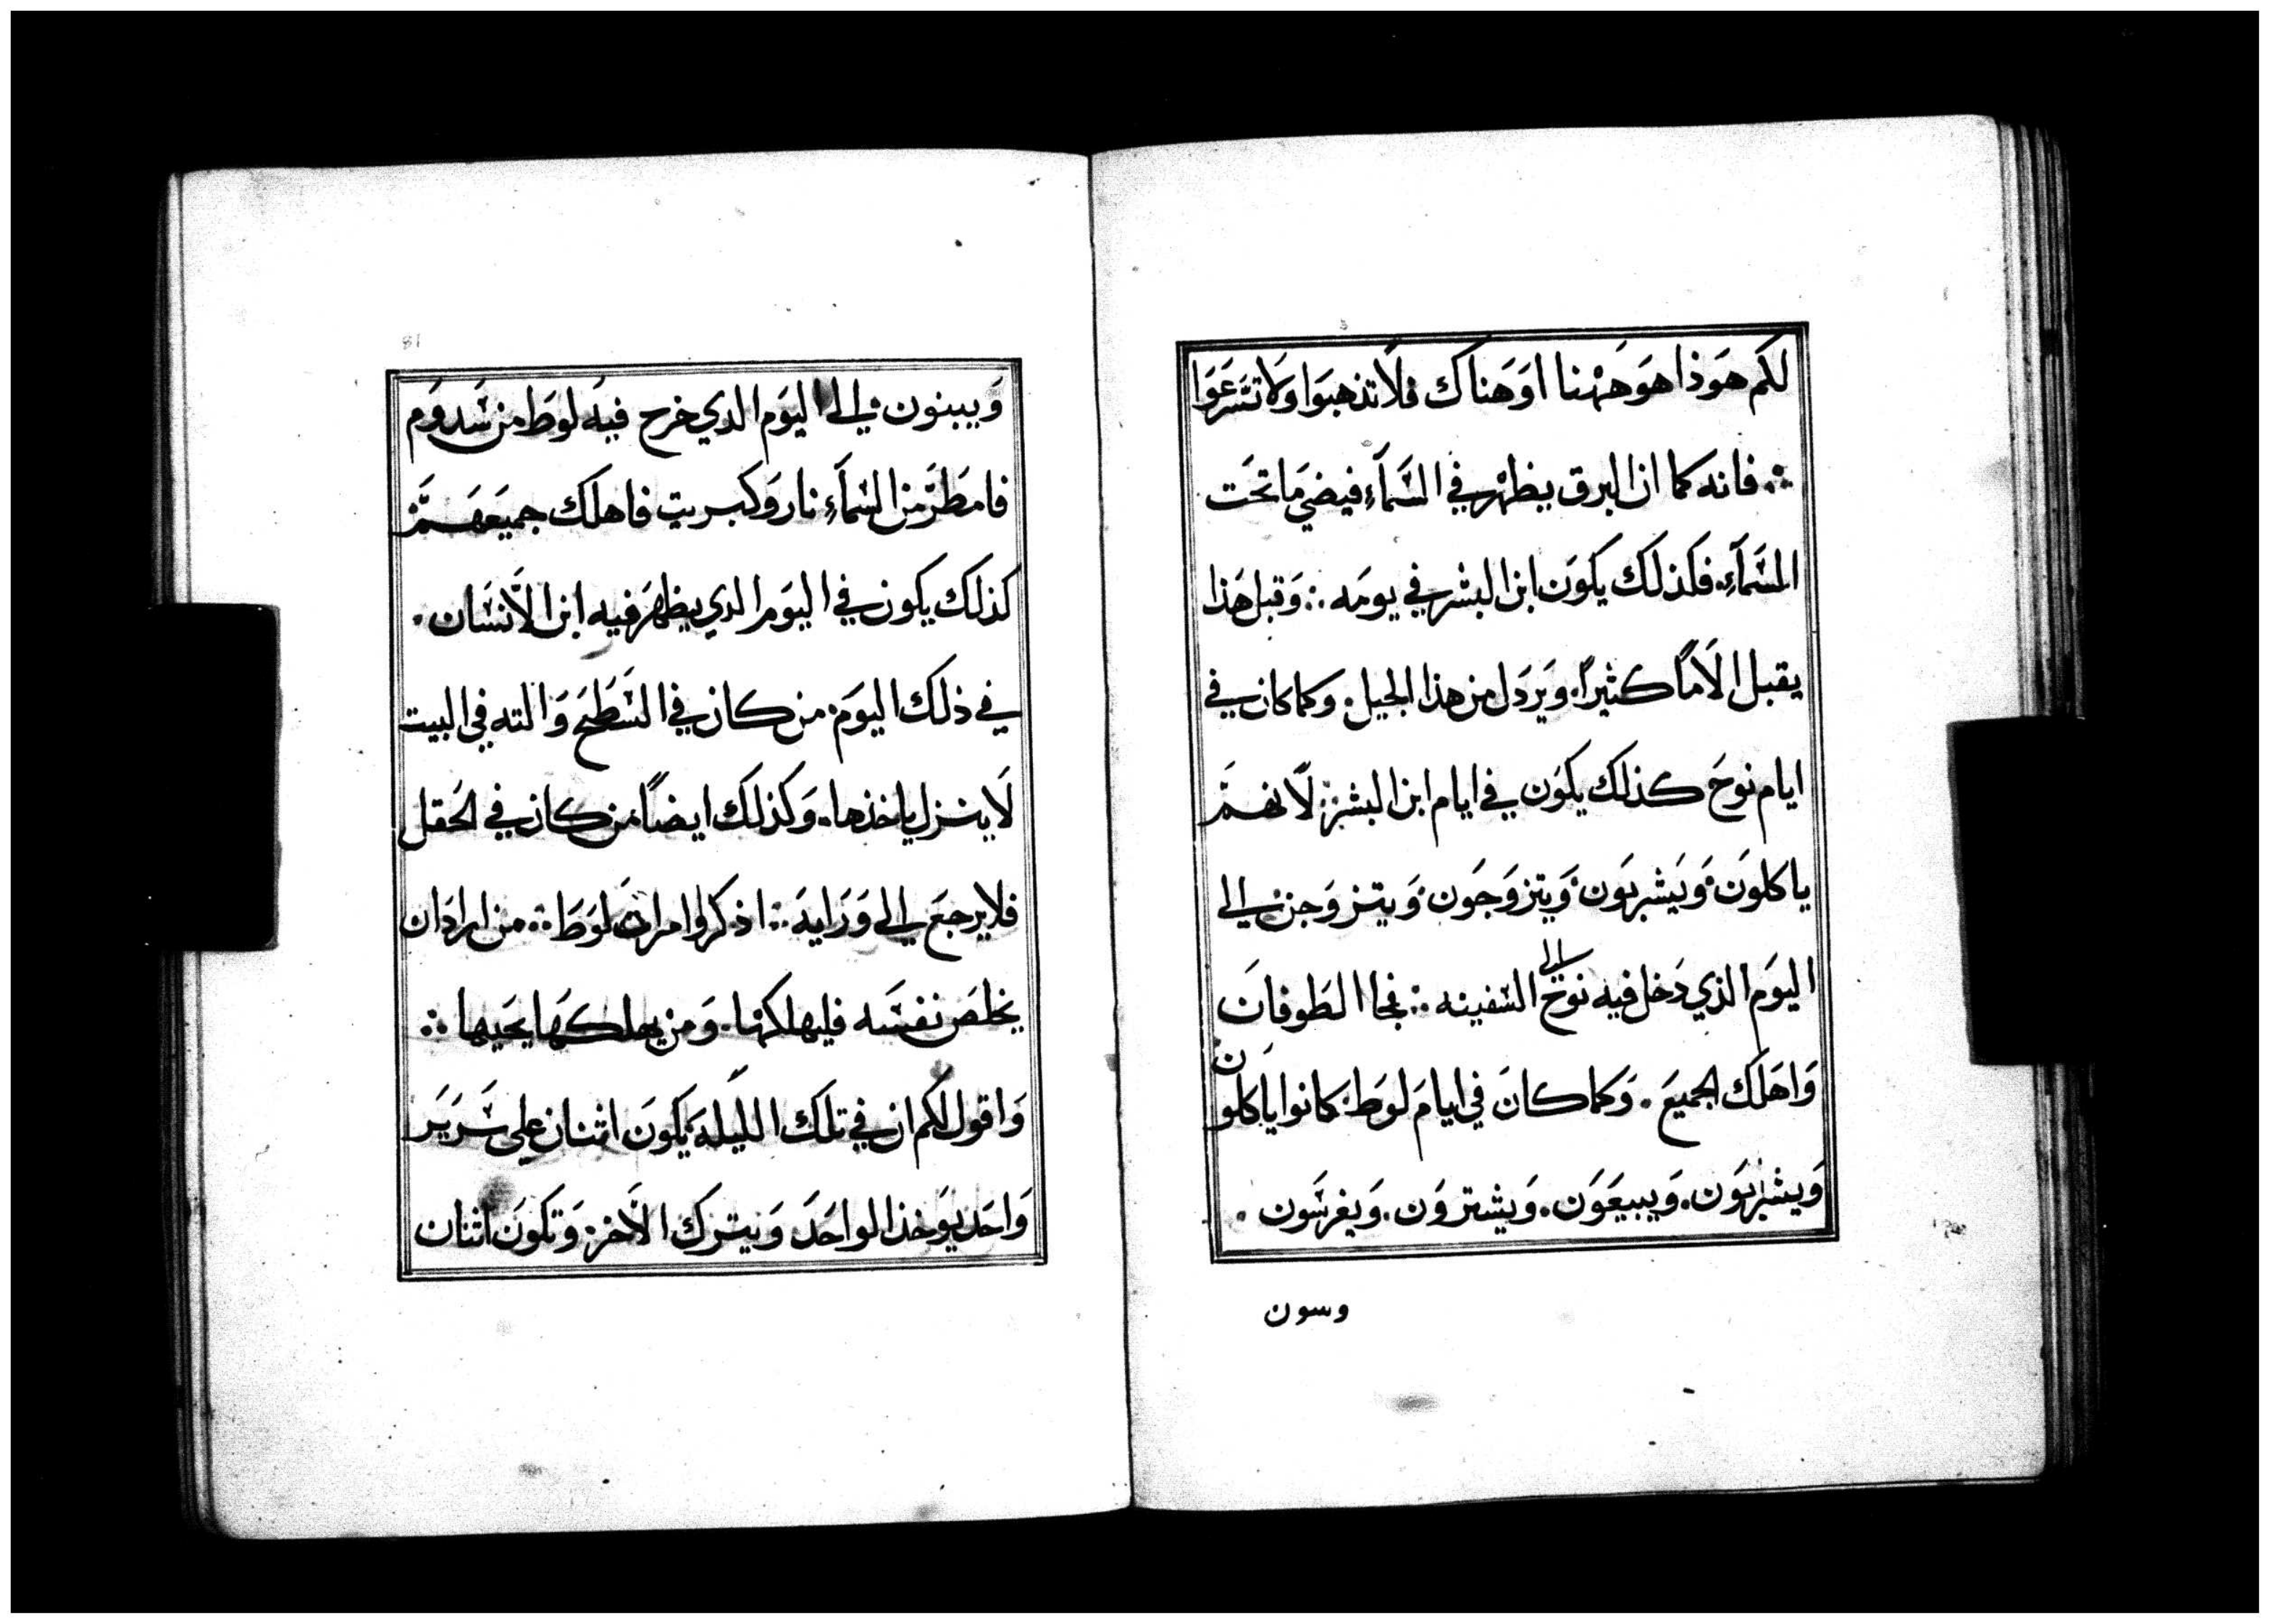 لكم هوذا هوههنا اوهناك فلاتذهبوا ولاتسرعوا
فانه كما ان البرق يظهر في السمآء فيضي ماتحت
السمآء. فكذلك يكون ابن البشر في يومه ∴ وقبل هذا
يقبل الاماً كثيراً. ويردل من هذا الجيل. وكما كان في
ايام نوح كذلك يكون في ايام ابن البشر لانهم
ياكلون. ويشربون. ويتزوجون. ويتزوجن الى
اليوم الذي دخل فيه نوح الى السفينه ∴ فجا الطوفان
واهلك الجميع. وكما كان في ايام لوط كانوا ياكلون
ويشربون. ويبيعون. ويشترون. ويغرسون.
وسون
81
ويبنون. الى اليوم الدي خرج فيه لوط من سدوم
فامطر من السمآء نار وكبريت فاهلك جميعهم
كذلك يكون في اليوم الدي يظهر فيه ابن الانسان.
في ذلك اليوم. من كان في السطح والته في البيت
لاينزل ياخذها. وكذلك ايضاً من كان في الحقل
فلايرجع الى ورايه ∴ اذكروا امراة لوط ∴ من اراد ان
يخلص نفسه فليهلكها. ومن يهلكها يحييها ∴
واقول لكم ان في تلك الليله يكون اثنان على سرير
واحد يوخذ الواحد ويترك الاخر. وتكون اثنان